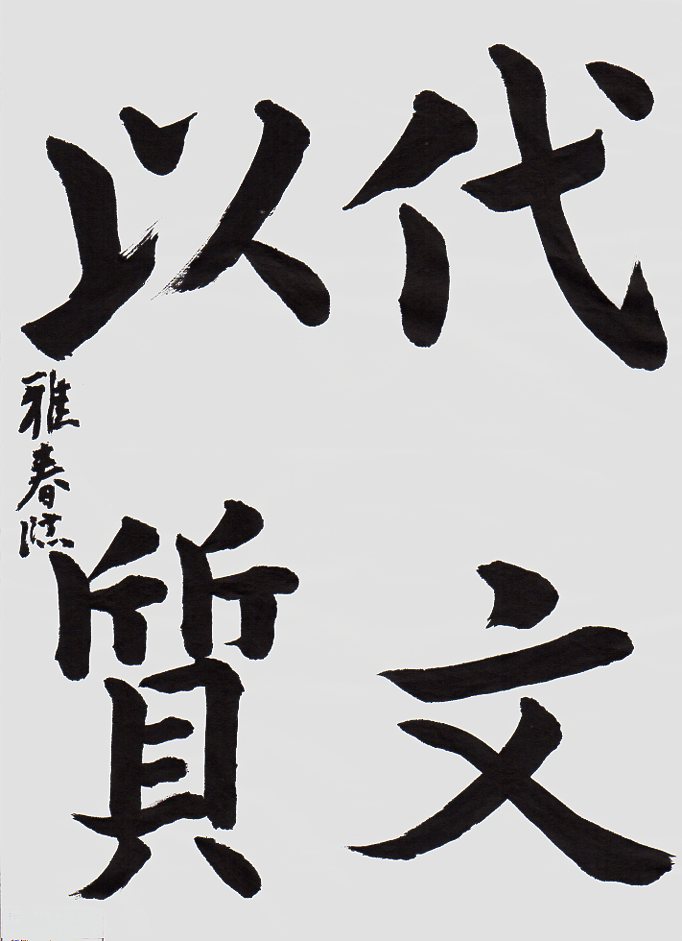 代文
以質
雅春臨